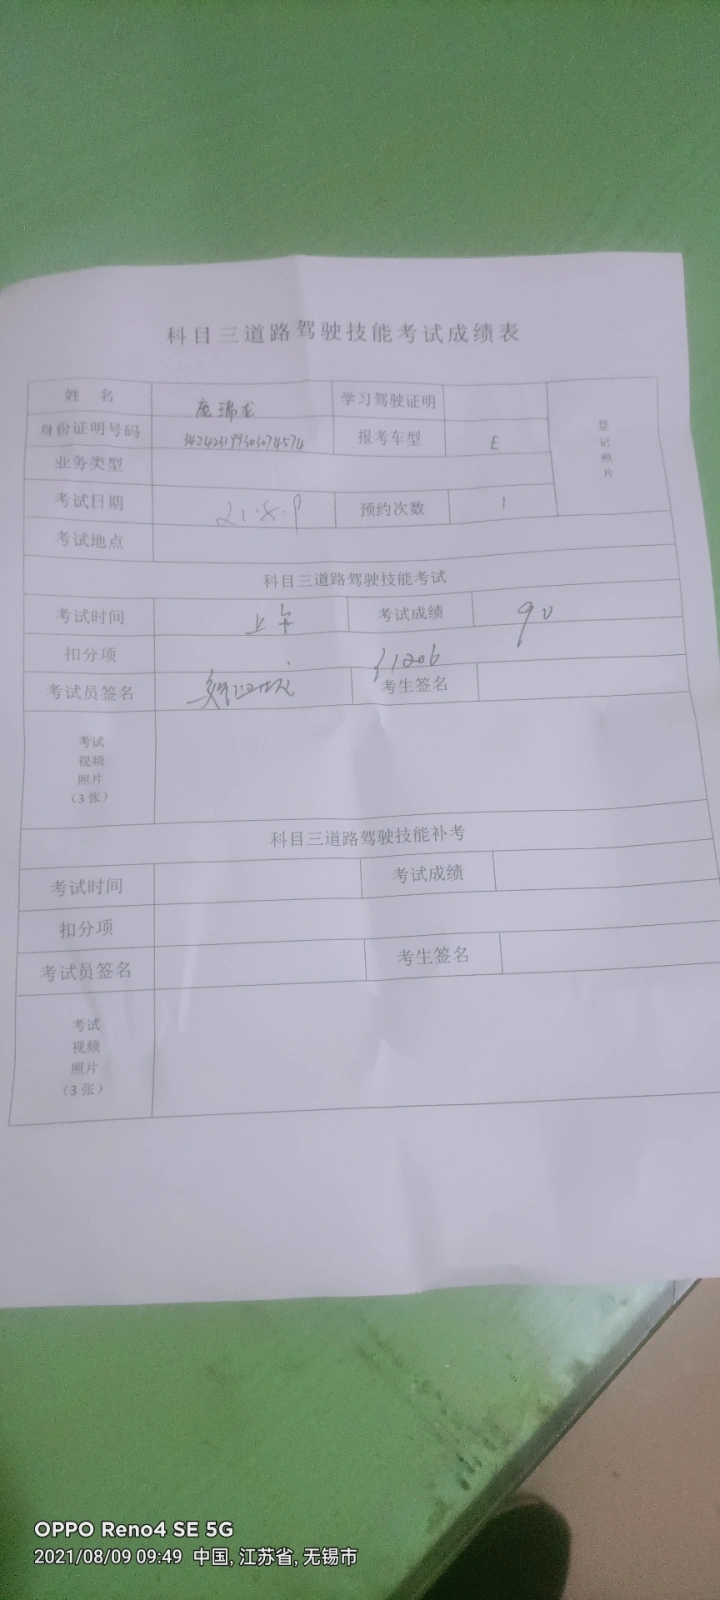 科目三道路驾驶技能考试成绩表
姓 名 庞瑞龙 学习驾驶证明
登记照片
身份证明号码 342423199303074574 报考车型 E
业务类型
考试日期 21.8.9 预约次数 1
考试地点
科目三道路驾驶技能考试
考试时间 上午 考试成绩 90
扣分项 31206
考试员签名 考生签名
考试
视频
照片
（3 张）
科目三道路驾驶技能补考
考试时间 考试成绩
扣分项
考试员签名 考生签名
考试
视频
照片
（3 张）
OPPO Reno4 SE 5G
2021/08/09 09:49 中国, 江苏省, 无锡市